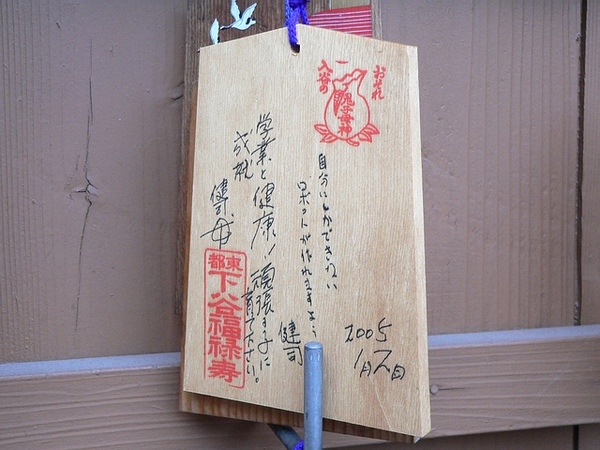 おそれ
入谷の
鬼子母神
自分にしかできない
ロボットが作れますよう
健司
2005
1月2日
学業と健康!頑張る子に
育て下さい。
成就
健司 母
東京都
下谷福禄寿